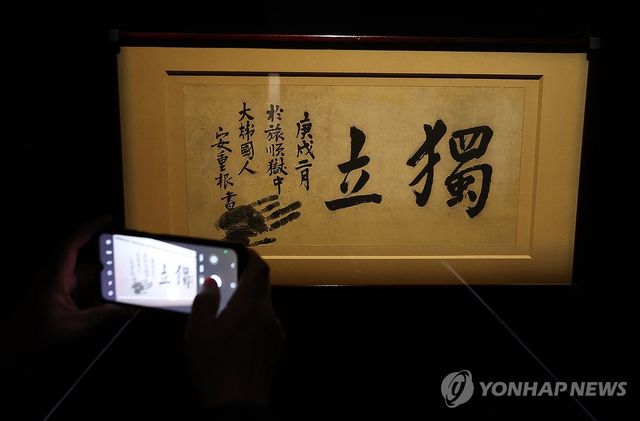 獨立
庚戌二月
於旅順獄中
大韓國人
安重根書
獨立
YONHAP NEWS